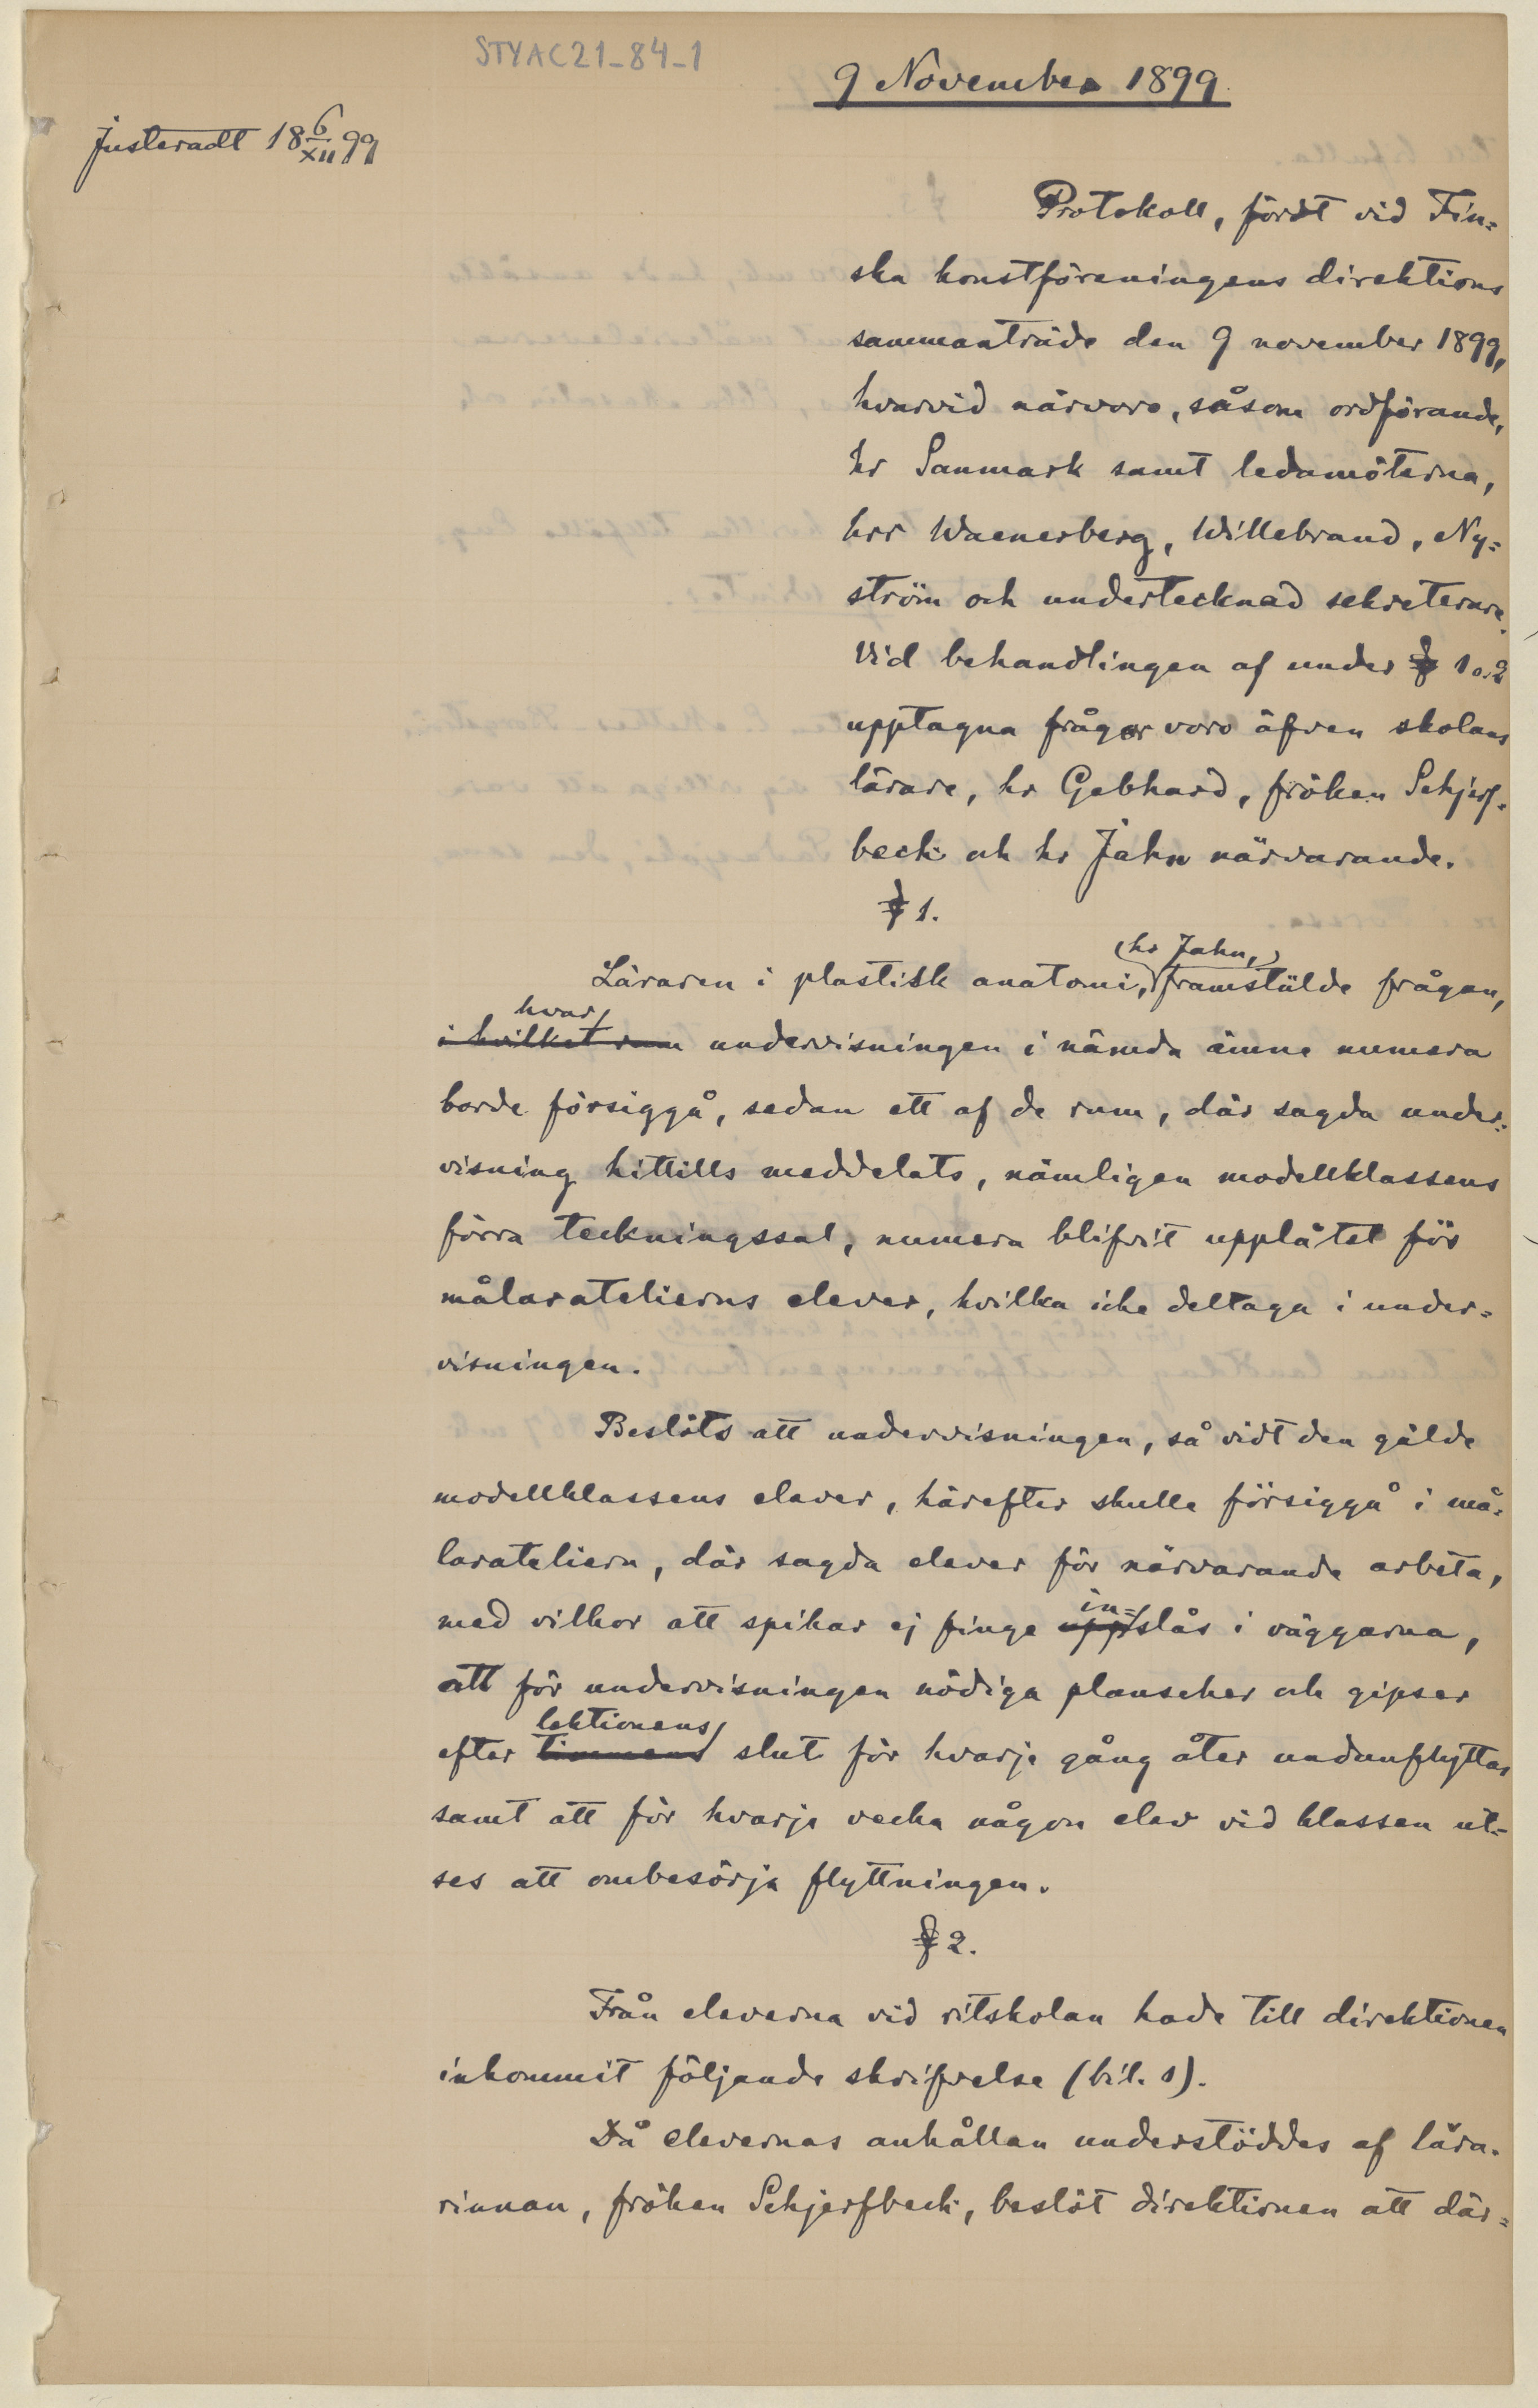 STYAC21-84-1
9 November 1899.
Justeradt 18 6/XII 99
Protokoll, fördt vid Fin=
ska konstföreningens direktions
sammanträde den 9 november 1899,
hvarvid närvoro, såsom ordförande,
hr Sanmark samt ledamöterna,
hrr Waenerberg, Willebrand, Ny=
ström och undertecknad sekreterare.
Vid behandlingen af under § 1 o. 2
upptagna frågor voro äfven skolans
lärare, hr Gebhard, fröken Schjerf=
beck och hr Jahn närvarande.
§ 1.
(hr Jahn,)
Läraren i plastisk anatomi, framstälde frågan,
hvar
i hvilket rum undervisningen i nämda ämne numera
borde försiggå, sedan ett af de rum, där sagda under=
visning hittills meddelats, nämligen modellklassens
förra teckningssal, numera blifvit upplåtet för
målaratelierns elever, hvilka icke deltaga i under=
visningen.
Beslöts att undervisningen, så vidt den gälde
modellklassens elever, härefter skulle försiggå i må=
larateliern, där sagda elever för närvarande arbeta,
in=
med vilkor att spikar ej finge uppslås i väggarna,
att för undervisningen nödiga planscher och gipser
lektionens
efter timmens slut för hvarje gång åter undanflyttas
samt att för hvarje vecka någon elev vid klassen ut=
ses att ombesörja flyttningen.
§ 2.
Från eleverna vid ritskolan hade till direktionen
inkommit följande skrifvelse (bil. 1).
Då elevernas anhållan understöddes af lära=
rinnan, fröken Schjerfbeck, beslöt direktionen att där=